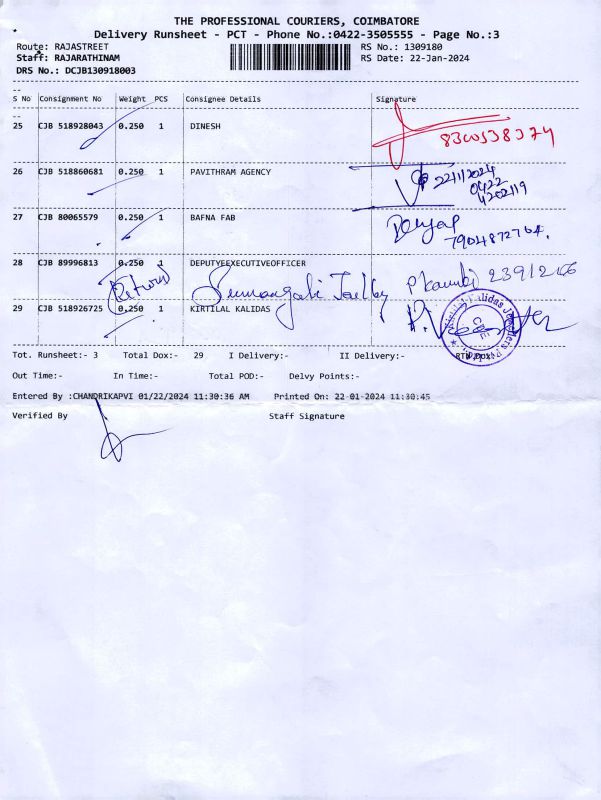 THE PROFESSIONAL COURIERS, COIMBATORE
Delivery Runsheet - PCT - Phone No.:0422-3505555 - Page No.:3
Route: RAJASTREET RS No.: 1309180
Staff: RAJARATHINAM RS Date: 22-Jan-2024
DRS No.: DCJB130918003
S No Consignment No Weight PCS Consignee Details Signature
25 CJB 518928043 0.250 1 DINESH
26 CJB 518860681 0.250 1 PAVITHRAM AGENCY 22/1/2024
0422
4202119
27 CJB 80065579 0.250 1 BAFNA FAB
7904872764.
28 CJB 89996813 0.250 1 DEPUTYEEXECUTIVEOFFICER
Return 239/2
29 CJB 518926725 0.250 1 KIRTILAL KALIDAS
Kirtilal Kalidas Jewellers
Tot. Runsheet:- 3 Total Dox:- 29 I Delivery:- II Delivery:- RTN Dox:-
Out Time:- In Time:- Total POD:- Delvy Points:-
Entered By :CHANDRIKAPVI 01/22/2024 11:30:36 AM Printed On: 22-01-2024 11:30:45
Verified By Staff Signature